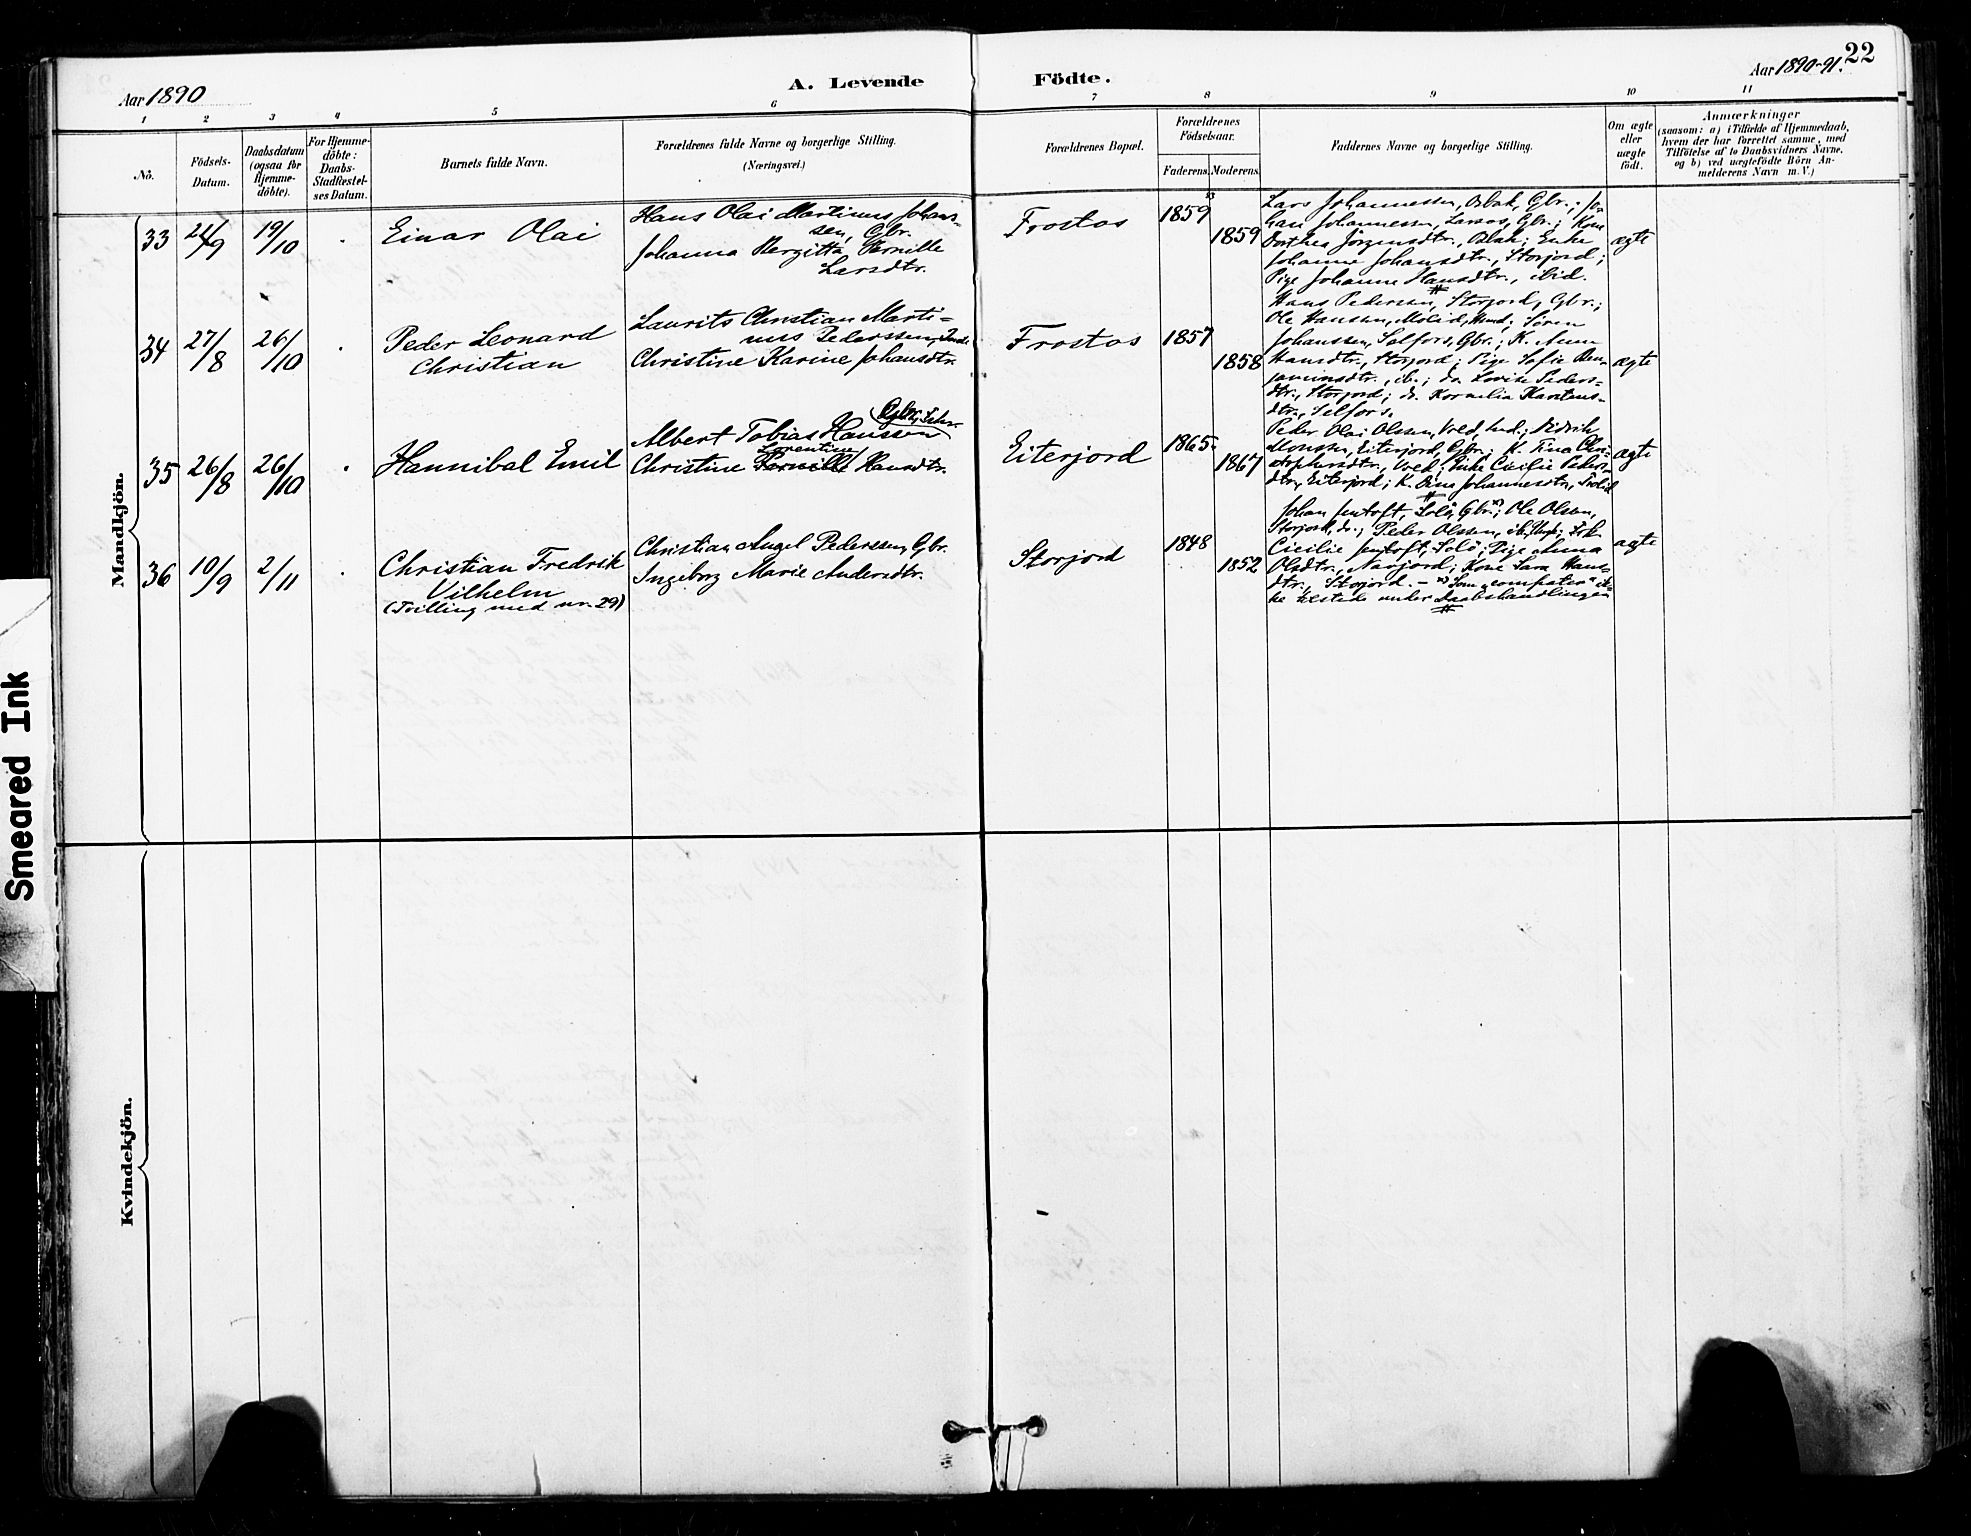 22
Aar 1890
A. Levende Födte.
Aar 1890-91.
1 2 3 4 5 6 7 8 9 10 11
No.
Födsels-
Datum.
Daabsdatum
(ogsaa for
Hjemme-
döbte).
For Hjemme-
döbte:
Daabs-
Stadfæstel-
ses Datum.
Barnets fulde Navn.
Forældrenes fulde Navne og borgerlige Stilling.
(Næringsvei.)
Forældrenes Bopæl.
Forældrenes
Födselsaar.
Faderens. Moderens.
Faddernes Navne og borgerlige Stilling.
Om ægte
eller
uægte
födt.
Anmærkninger
(saasom: a) i Tilfælde af Hjemmedaab,
hvem der har forrettet samme, med
Tilföielse af to Daabsvidners Navne,
og b) ved uægtefödte Börn An-
melderens Navn m. V.)
Mandkjön.
33 /9 19/10
Einar Olai
Hans Olai Martinus Johans-
sen, Gbr.
Johanna Bergitta Pernille
Larsdtr.
Frostos
1859
1859
Lars Johannessen, Osbak, Gbr.; Jo-
han Johannessen, Larsos, Gbr.; Kone
Dorthea Jörgensdtr., Osbak; Enke
Johanne Johansdtr., Storjord;
Pige Johanne Hansdtr., ibid.
ægte
34 27/8 26/10
Peder Leonard
Christian
Laurits Christian Marti-
nus Pederssen,
Christine Karine Johansdtr.
Frostos
1857
1858
Hans Pederssen, Storjord, Gbr.;
Ole Hanssen, Molid, ; Sören
Johanssen, Selfors, Gbr.; K. Anna
Hansdtr., Storjord; Pige Sofie Ben-
jaminsdtr., ib.; do. Lovise Peders-
dtr., Storjord; do. Kornelia Karstens-
dtr., Selfors.
ægte
35 26/8 26/10
Hannibal Emil
Gbr.,
Albert Tobias Hanssen
Lorentine
Christine Pernille Hansdtr.
Eiterjord
1865
1867
Peder Olai Olssen, Vred, ; Didrik
Monssen, Eiterjord, Gbr.; K. Tina Chri-
stophersdtr., Vred; Enke Cicilie Peders-
dtr., Eiterjord; K. Dina Johannesdtr.,
ægte
36 10/9 2/11
Christian Fredrik
Vilhelm
(Tvilling med nr. 29)
Christian Angel Pederssen, Gbr.
Ingeborg Marie Andersdtr.
Storjord
1848
1852
Johan Jentoft, Solö, Gbr.*); Ole Olsen,
Storjord, do.; Peder Olssen, ib.,
Cicilie Jentoft, Solö; Pige Anna
Olsdtr., Navjord; Kone Sara Hans-
dtr., Storjord. - *) Som "compater" ik-
ke tilstede under Daabshandlingen
ægte
Kvindekjön.
Smeared Ink